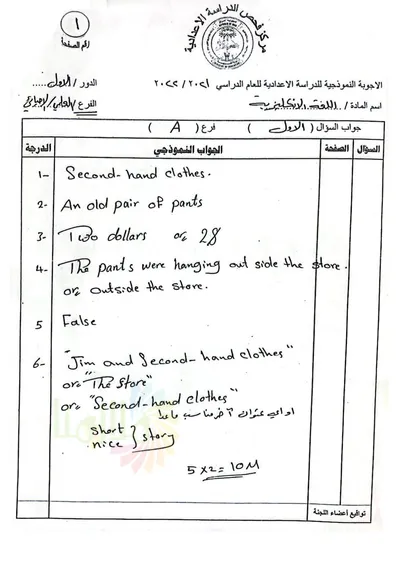 ١
رقم الصفحة
مركز فحص الدراسة الاعدادية
الاجوبة النموذجية للدراسة الاعدادية للعام الدراسي ٢٠٢١ / ٢٠٢٢
الدور / الاول
اسم المادة / اللغة الانكليزية
الفرع /
جواب السؤال ( الاول ) فرع ( A )
السؤال الصفحة الجواب النموذجي الدرجة
1- Second-hand clothes.
2- An old pair of pants
3- Two dollars or 2$
4- The pants were hanging out side the store.
or outside the store.
5 False
6- "Jim and Second-hand clothes"
or "The Store"
or "Second-hand clothes"
او اي عنوان آخر مناسب ماعدا
short
nice } story
5 x 2 = 10 M
تواقيع اعضاء اللجنة